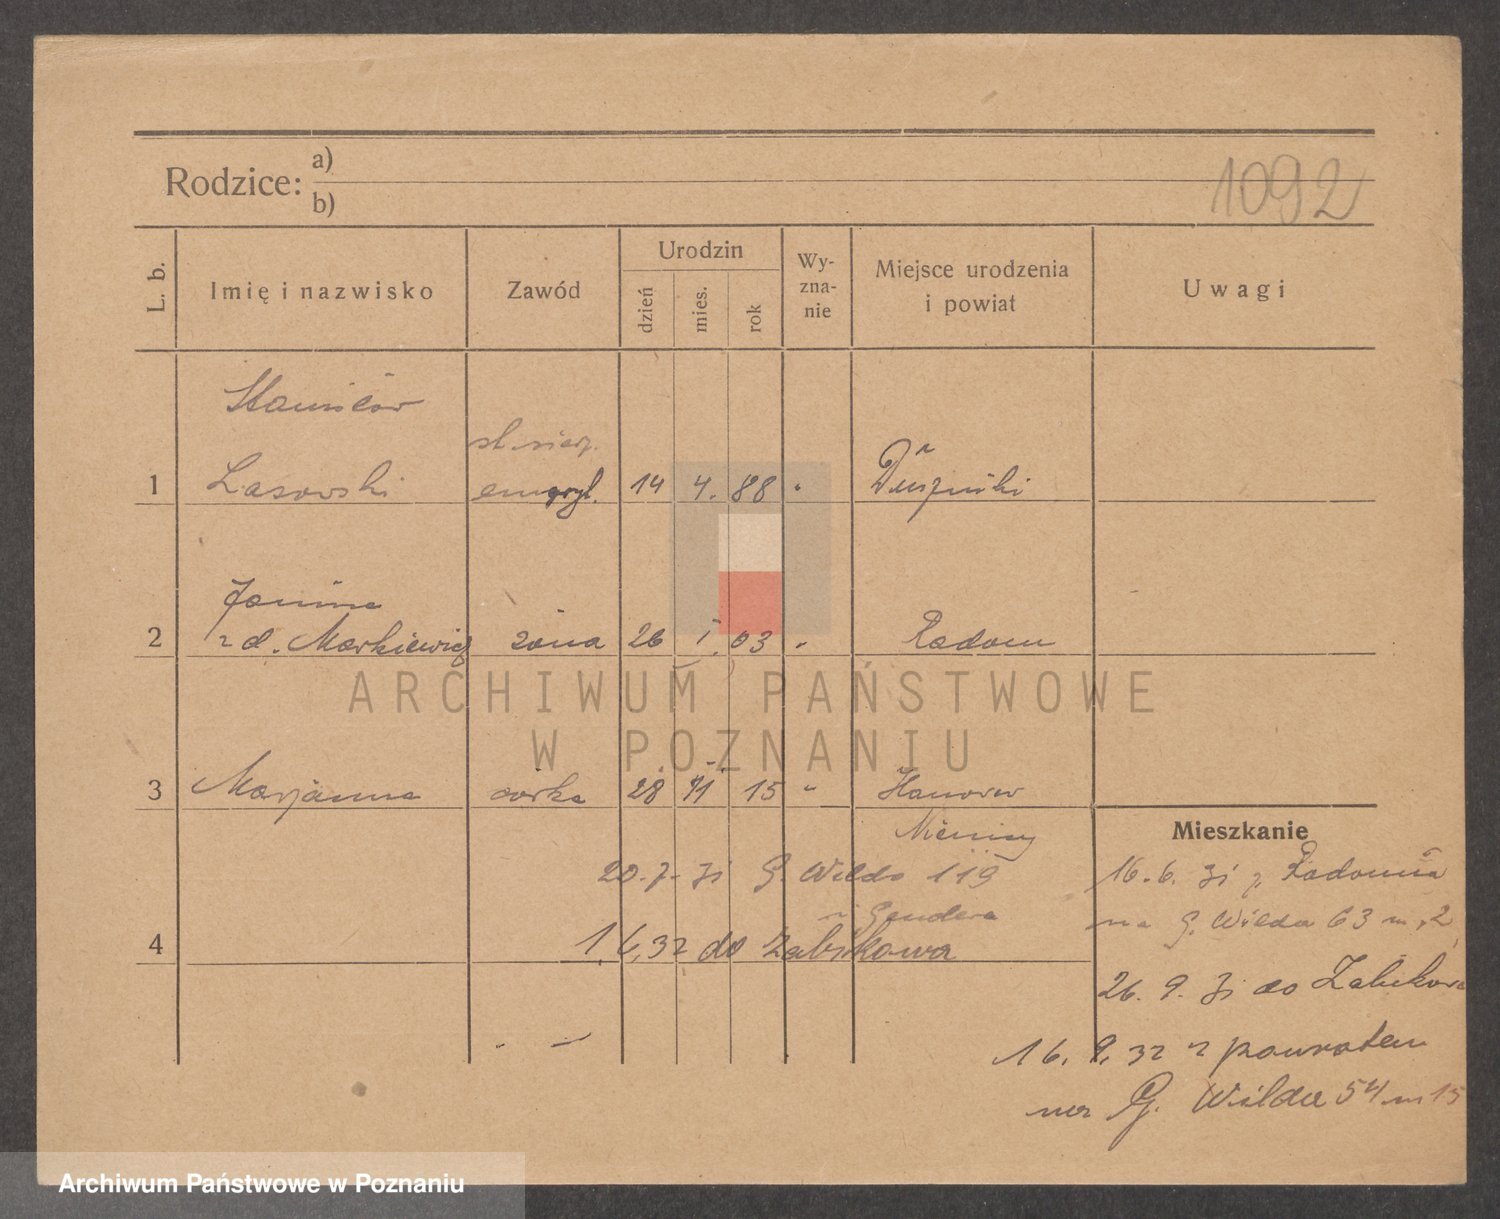 Rodzice: a)
b)
1092
L. b.
Imię i nazwisko
Zawód
Urodzin
dzień
mies.
rok
Wy-
zna-
nie
Miejsce urodzenia
i powiat
Uwagi
Stanisław
1 Lasowski emeryt. 14 4. 88 "
Janina
2 z d. Markiewicz żona 26 I. 03 " Radom
3 Marjanna córka 28 15 " Hanower
Niemcy
Mieszkanie
20. 7. 31 G. Wilda 119
u Gendera
4 1.6.32 do Żabikowa
16. 6. 31 z Radomia
na G. Wilda 63 m. 2
26. 9. 31 do Żabikowa
16. 9. 32 z powrotem
na G. Wilda 54 m 15
ARCHIWUM PAŃSTWOWE
W POZNANIU
Archiwum Państwowe w Poznaniu